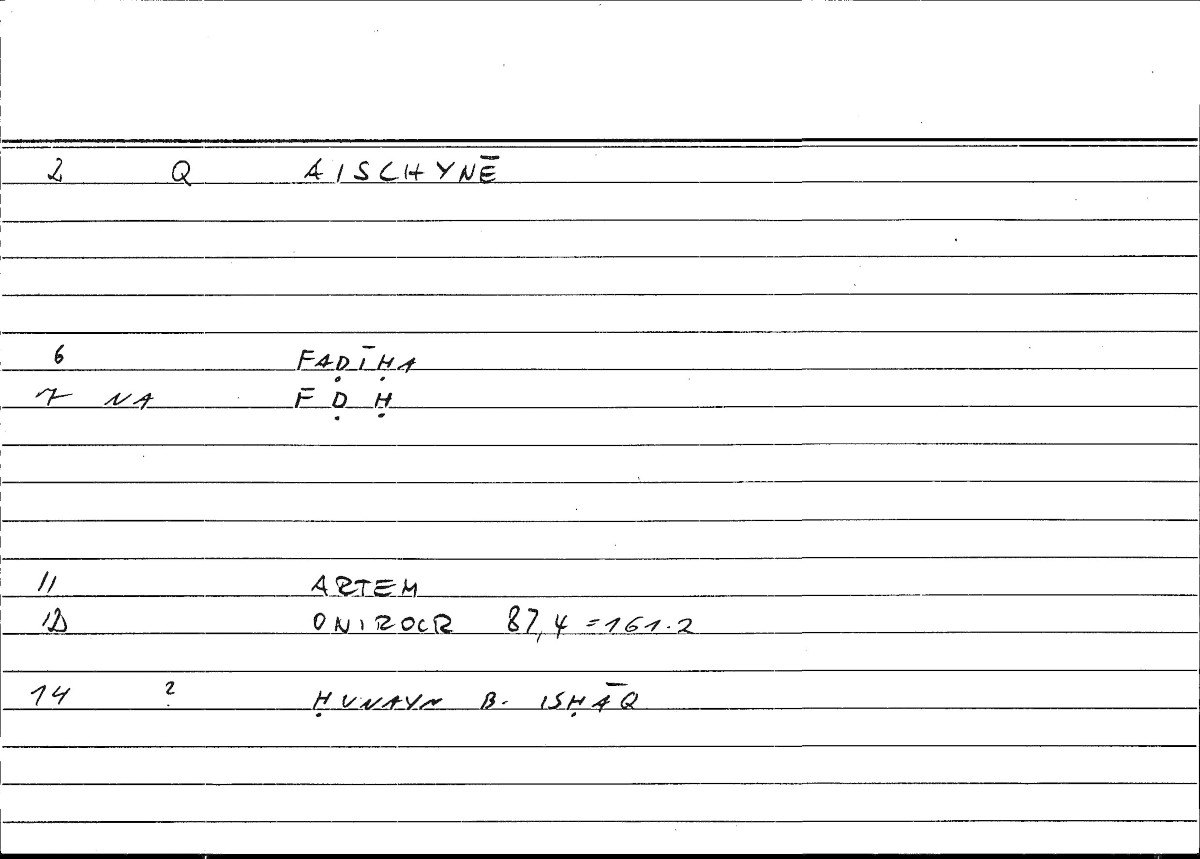 2 Q AISCHYNĒ
6 FAḌĪḤA
7 NA F Ḍ Ḥ
11 ARTEM
12 ONIROCR 87,4 = 161.2
14 ? ḤUNAYN B. ISḤĀQ